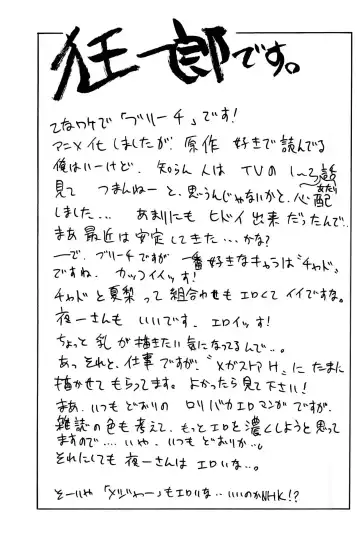 狂一郎です。
てなワケで「ブリーチ」です!
アニメ化しましたが、原作 好きで読んでる
俺はいーけど、知らん人は TVの1〜3話あたり
見て つまんねーと、思うんじゃないかと、心配
しました... あまりにも ヒドイ 出来だったんで..
まあ 最近は安定してきた...かな?
ーで、ブリーチですが 一番好きなキャラは"チャド"
ですね、カッコイイッす!
チャドと夏梨って組合わせもエロくてイイですな。
夜一さんも いいです、エロイッす!
ちょっと 乳が描きたい気になってるんで..。
あっ それと、仕事ですが、"メガストアH"にたまに
描かせてもらってます。よかったら見て下さい!
まあ、いつもどおりの ロリバカエロマンガですが、
雑誌の色も考えて、もっとエロを濃くしようと思って
ますので.... いや、いつもどおりか..。
それにしても 夜一さんは エロいな..。
そーいや「メジャー」もエロいな.. いいのかNHK!?